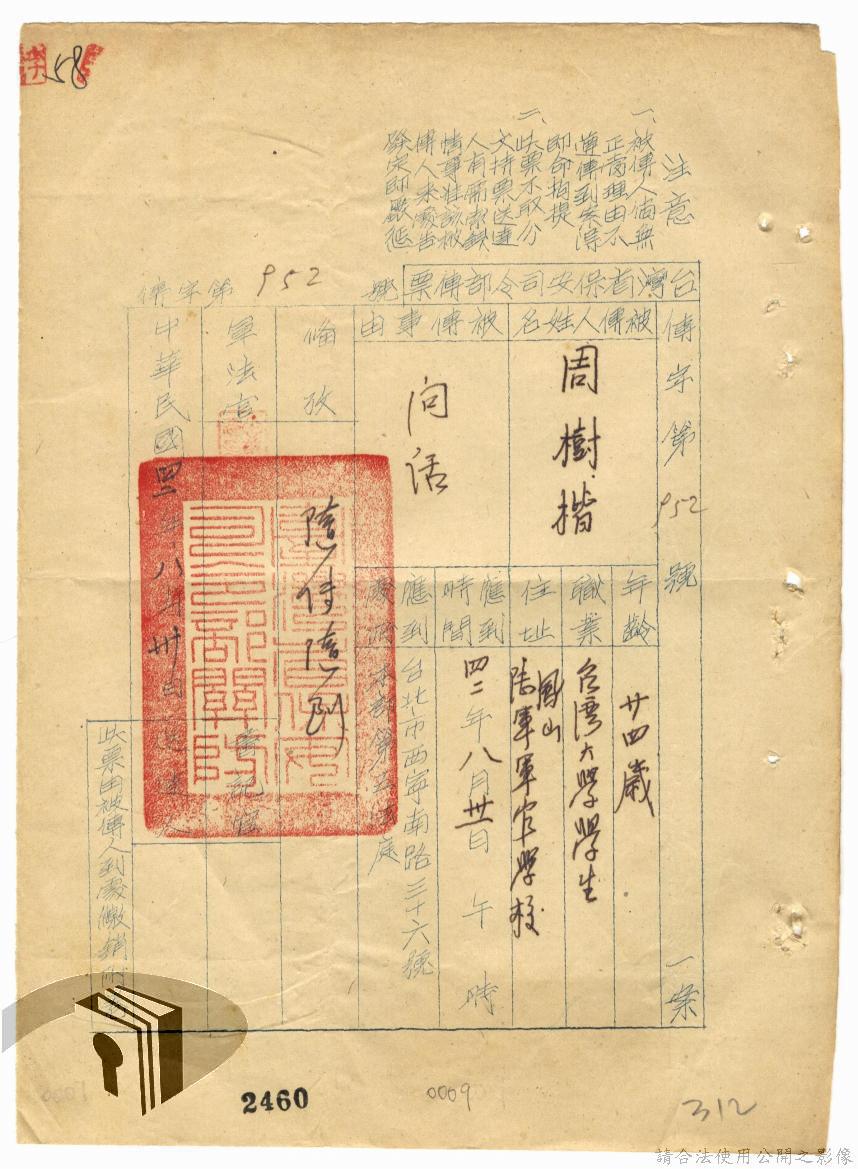 58
注意
一、被傳人倘無
正當理由不
遵傳到案得
即命拘提
二、此票不取分
文持票送達
人有需索錢
情事准該被
傳人來處告
發定即嚴懲
台灣省保安司令部傳票
傳字第952號
傳字第952號一案
被傳人姓名
周樹楷
被傳事由
问话
年齡
廿四歲
職業
台灣大學學生
住址
鳳山
陸軍軍官學校
應到時間
四二年八月卅一日午時
應到處所
台北市西寧南路三十六號
本部第五法庭
備攷
隨傳隨到
軍法官
書記官
中華民國四二年八月卅日
送達人
此票由被傳人到處繳銷附卷
2460
0009
312
請合法使用公開之影像